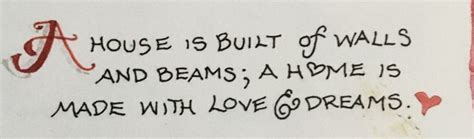 A HOUSE IS BUILT of WALLS
AND BEAMS; A HOME IS
MADE WITH LOVE & DREAMS.